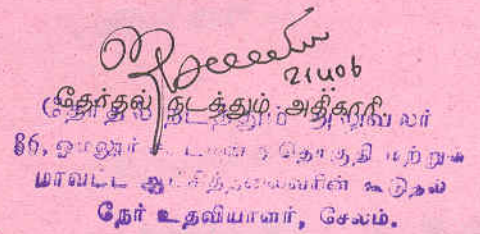 21406
தேர்தல் நடத்தும் அதிகாரி
தேர்தல் நடத்தும் அலுவலர்
86, ஓமலூர் தொகுதி மற்றும்
மாவட்ட ஆட்சித்தலைவரின் கூடுதல்
நேர் உதவியாளர், சேலம்.